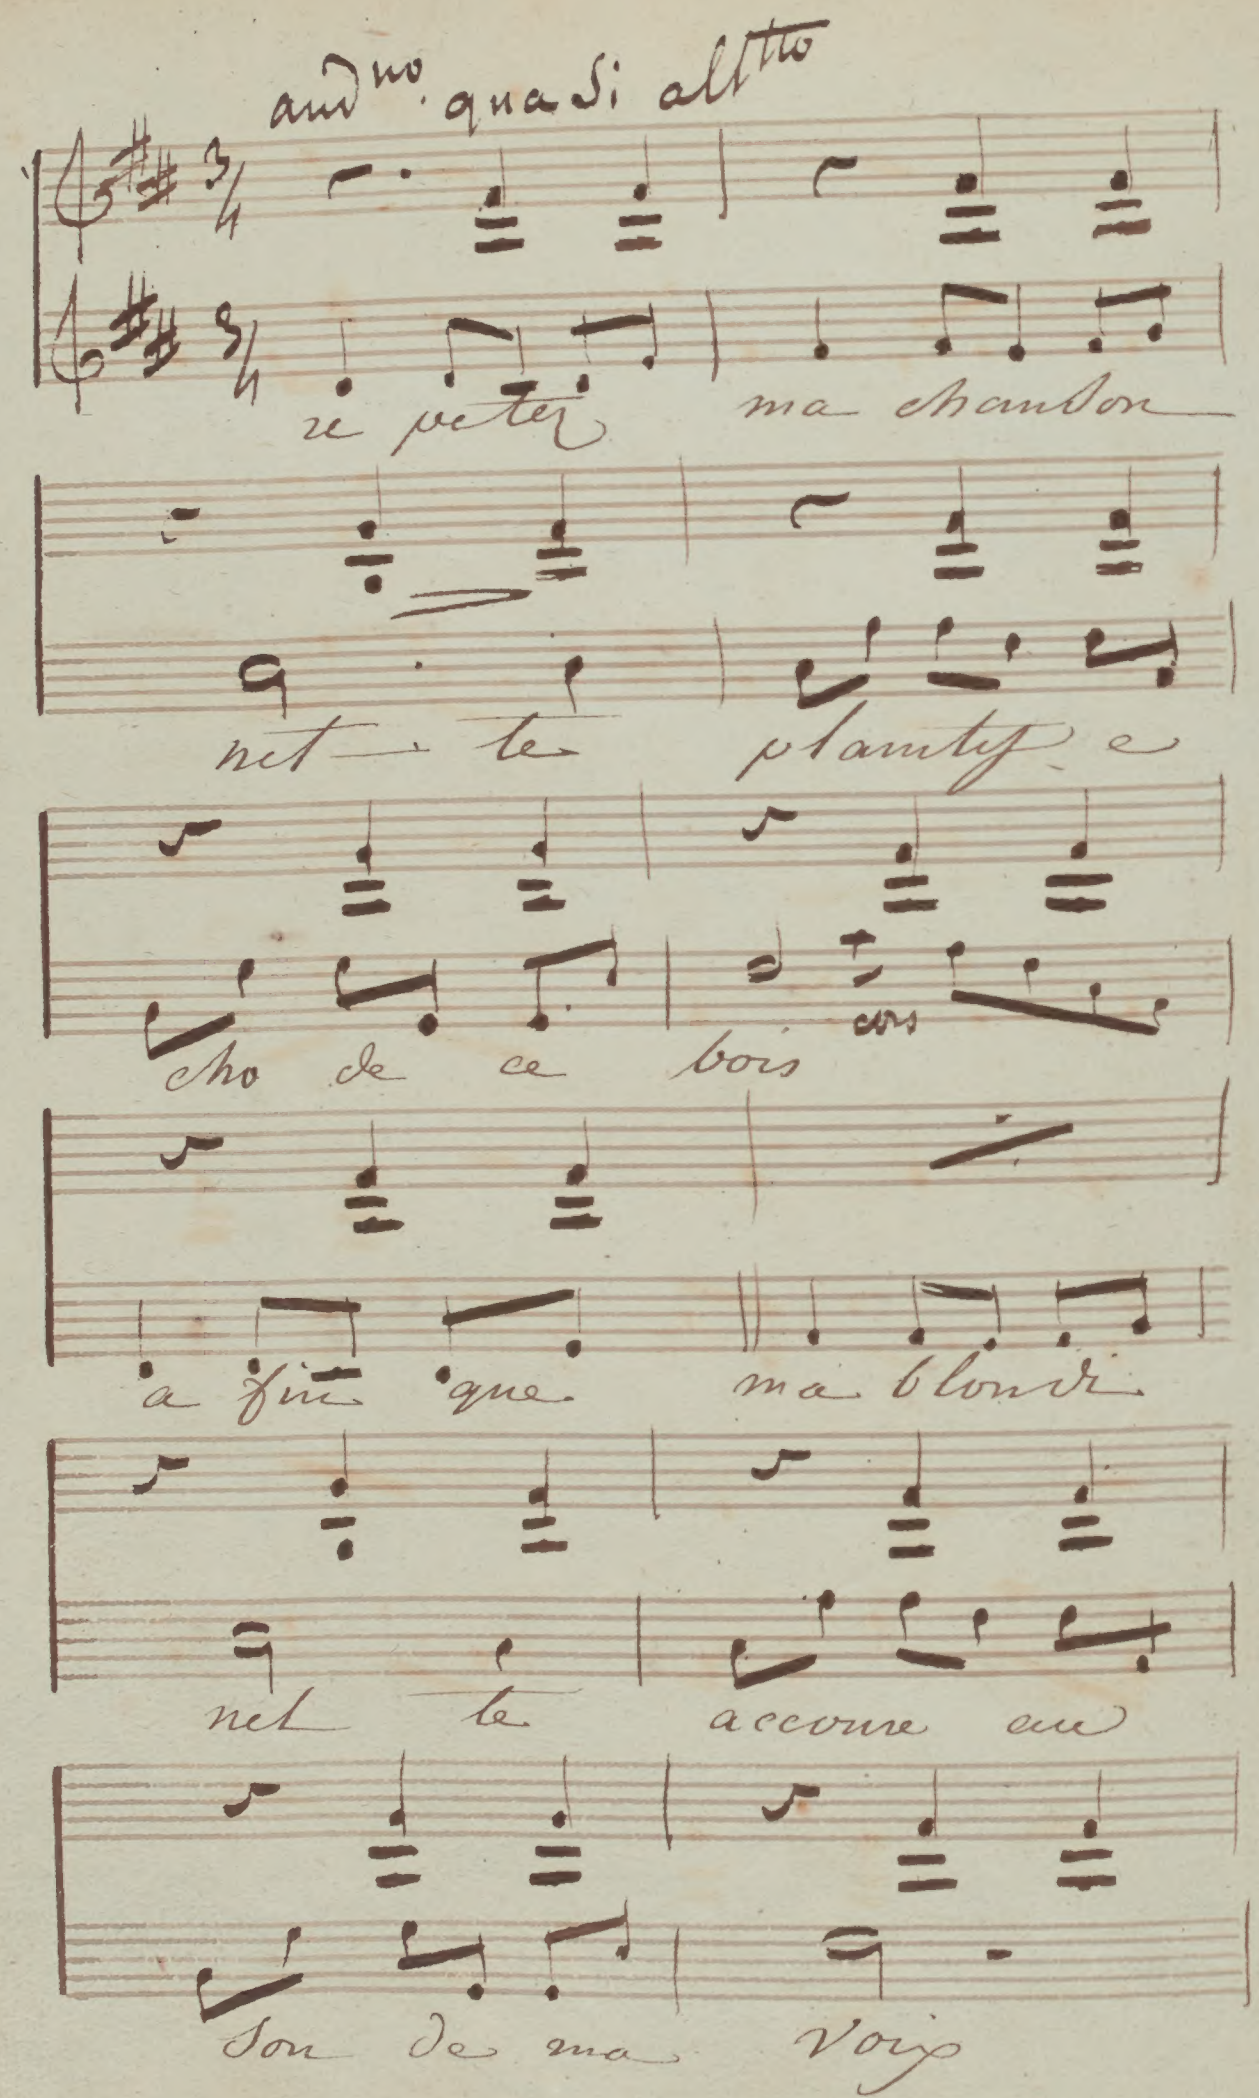 andno. quasi alltto
3/4
3/4
re petez ma chanson
net - te plaintif e
cho de ce bois cors
a fin que ma blondi
net te accoure au
son de ma voix